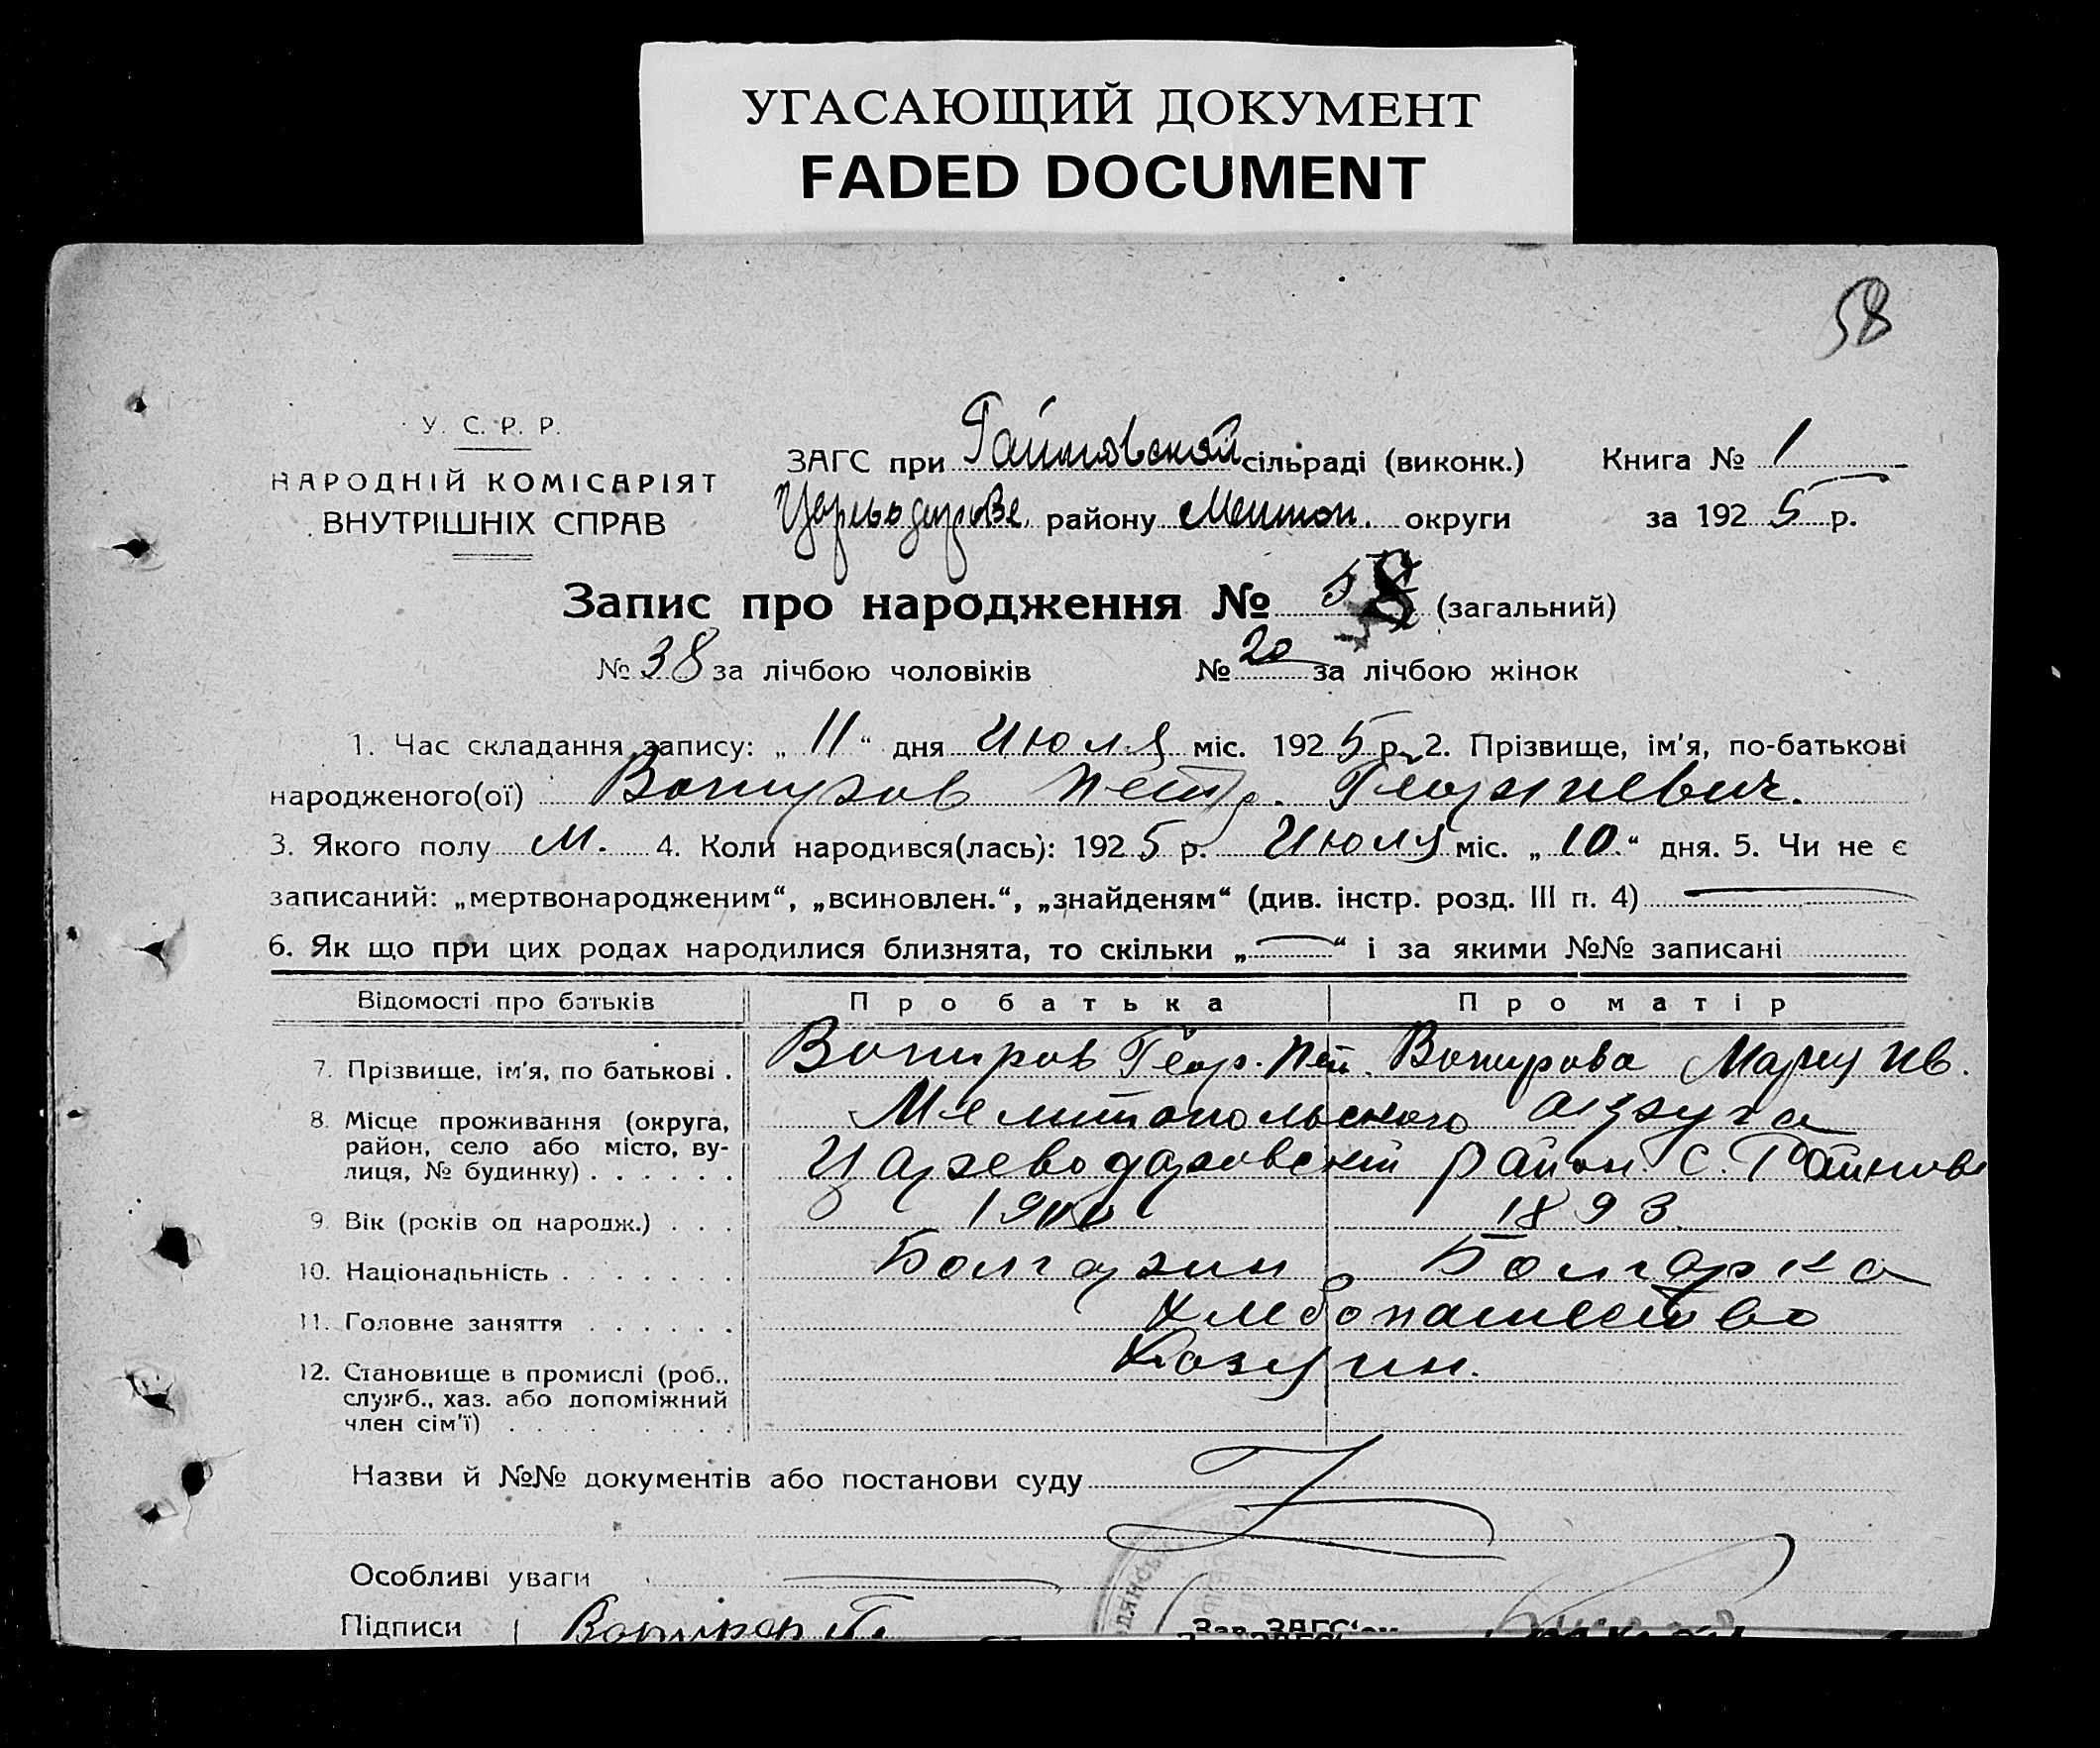 УГАСАЮЩИЙ ДОКУМЕНТ
FADED DOCUMENT
58
У. С. Р. Р.
НАРОДНІЙ КОМІСАРІЯТ
ВНУТРІШНІХ СПРАВ
ЗАГС при сільраді (виконк.) Книга № 1
району округи за 1925 р.
Запис про народження № 58 (загальний)
№ 38 за лічбою чоловіків № 20 за лічбою жінок
1. Час складання запису: „ 11 “ дня Июля міс. 1925 р. 2. Прізвище, ім'я, по-батькові
народженого(ої) Петр. Георгиевич.
3. Якого полу М. 4. Коли народився(лась): 1925 р. Июля міс. „ 10. “ дня. 5. Чи не є
записаний: „мертвонародженим“, „всиновлен.“, „знайденям“ (див. інстр. розд. III п. 4)
6. Як що при цих родах народилися близнята, то скільки „ “ і за якими №№ записані
Відомості про батьків Про батька Про матір
7. Прізвище, ім'я, по батькові . Геор. Пет. Ив.
8. Місце проживання (округа,
район, село або місто, ву-
лиця, № будинку) . . . . . .
Мелитопольского округа
район. С.
9. Вік (років од народж.) . . . 1900 1893
10. Національність . . . . . . . Болгарин Болгарка
11. Головне заняття . . . . . . Хлебопашество
12. Становище в промислі (роб..
служб., хаз. або допоміжний
член сім'ї) . . . . . . . . .
Назви й №№ документів або постанови суду
Особливі уваги
Підписи Зав. ЗАГС'ом